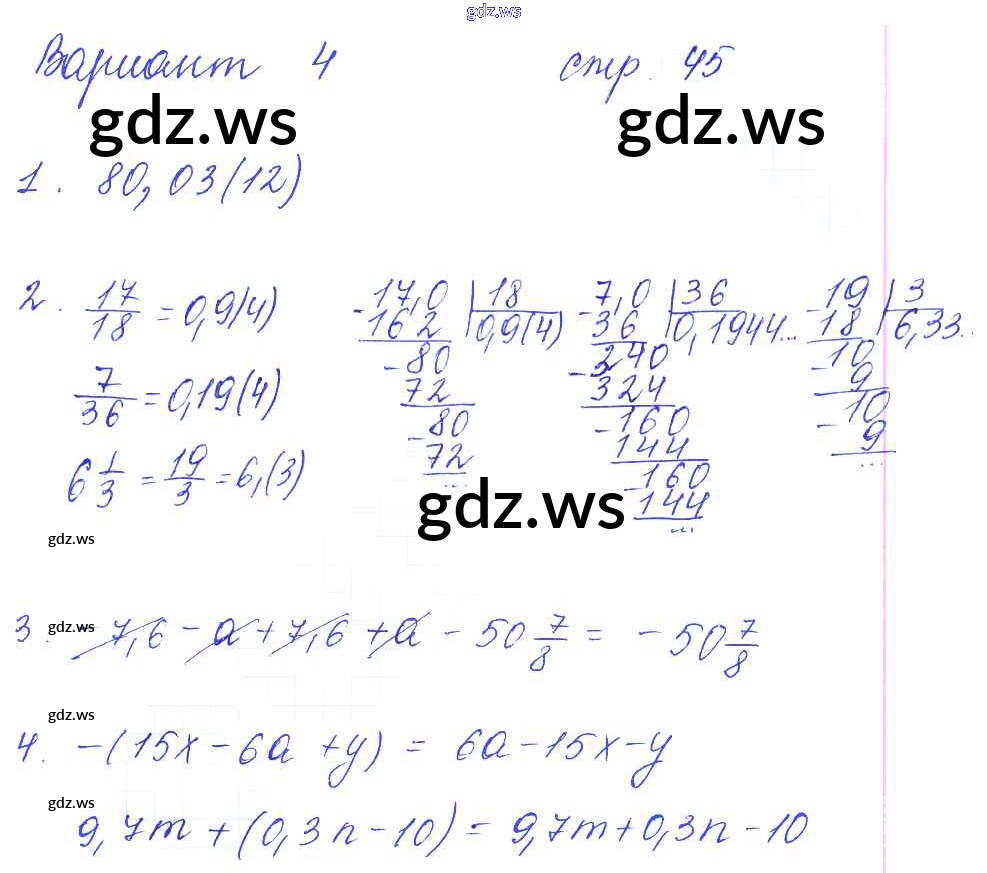 gdz.ws
Вариант 4 стр. 45
gdz.ws gdz.ws
1. 80,03(12)
2. 17/18 = 0,9(4)
7/36 = 0,19(4)
6 1/3 = 19/3 = 6,(3)
- 17,0 | 18
162 | 0,9(4)
- 80
72
- 80
72
...
- 7,0 | 36
36 | 0,1944...
- 340
324
- 160
144
- 160
144
...
- 19 | 3
18 | 6,33..
- 10
9
- 10
9
...
gdz.ws
gdz.ws
3. - 7,6 - a + 7,6 + a - 50 7/8 = - 50 7/8
gdz.ws
gdz.ws
4. -(15x - 6a + y) = 6a - 15x - y
gdz.ws
9,7m + (0,3n - 10) = 9,7m + 0,3n - 10